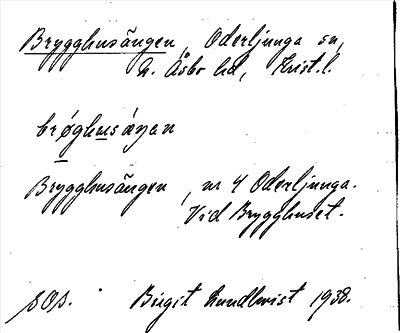 Brygghusängen, Oderljunga sn,
N. Åsbo hd, Krist. l.
brøghusáŋan
Brygghusängen, nr 4 Oderljunga.
Vid Brygghuset.
sos. Birgit Lundkvist 1938.